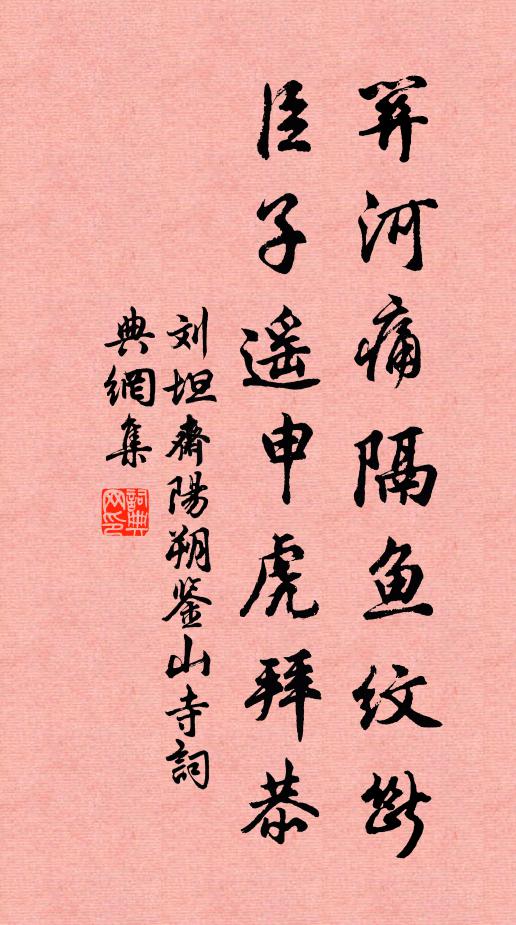 关河痛隔鱼纹断
臣子遥申虎拜恭
刘坦齋陽朔鉴山寺詞
典網集
詞典網印